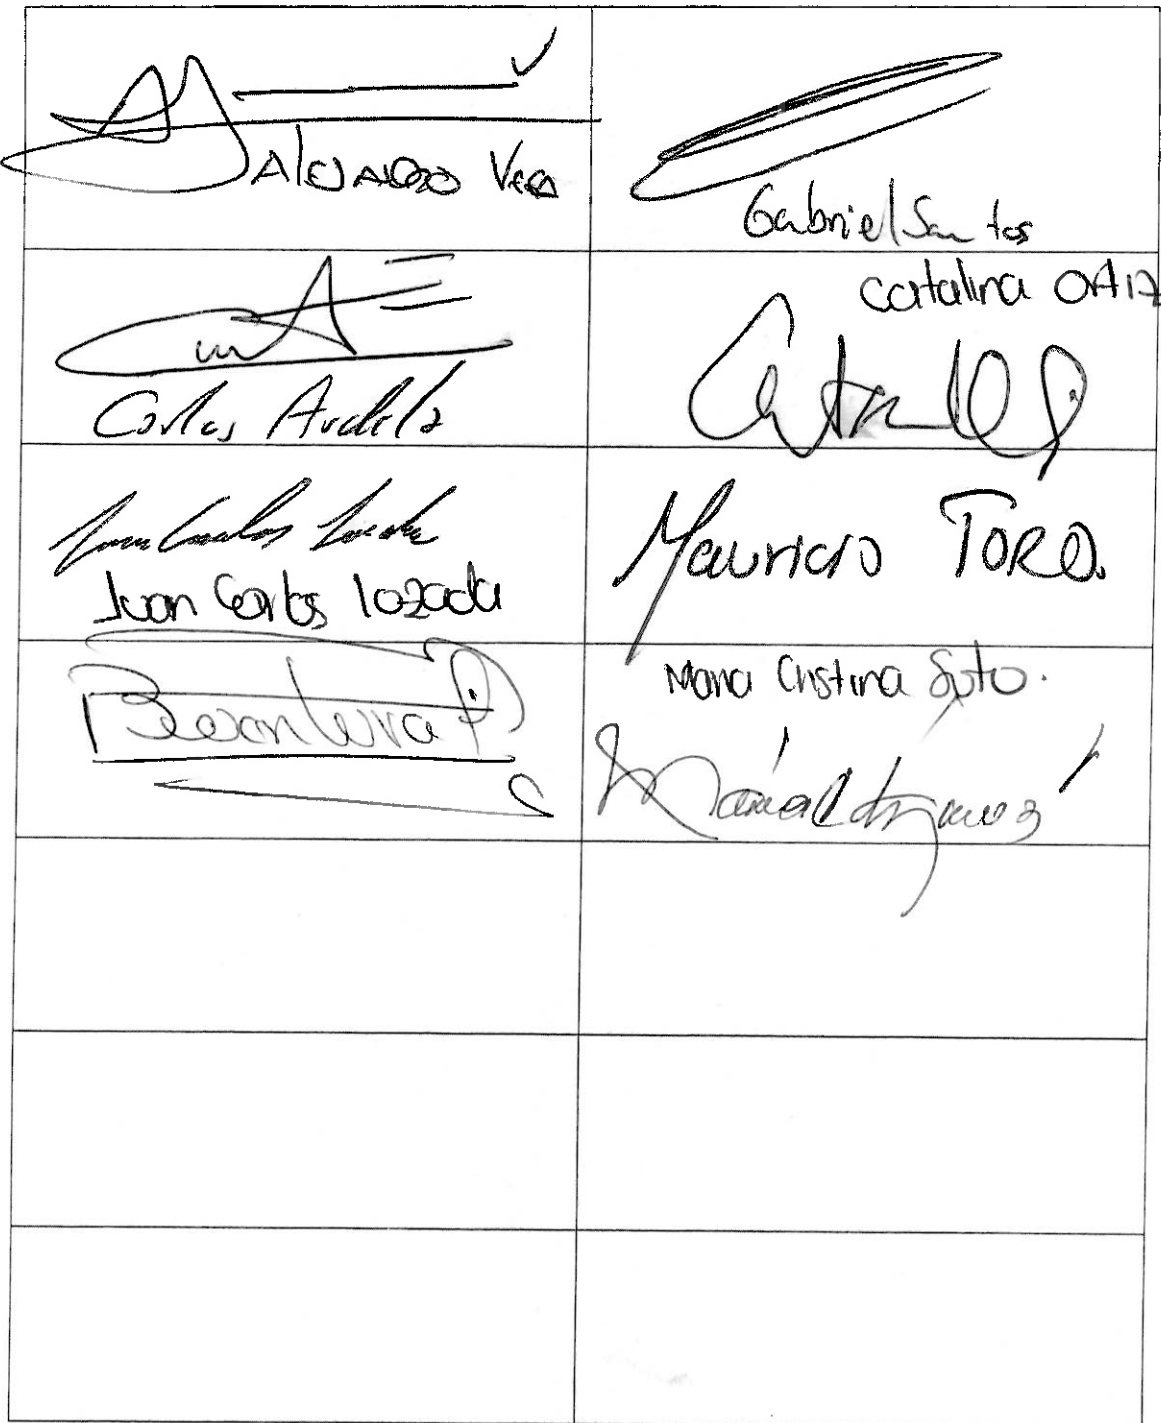 Alejandro Vega
Gabriel Santos
Carlos Ardila
Catalina Ortiz
Juan Carlos Lozada
Juan Carlos lozada
Mauricio TORO.
Maria Cristina Soto.